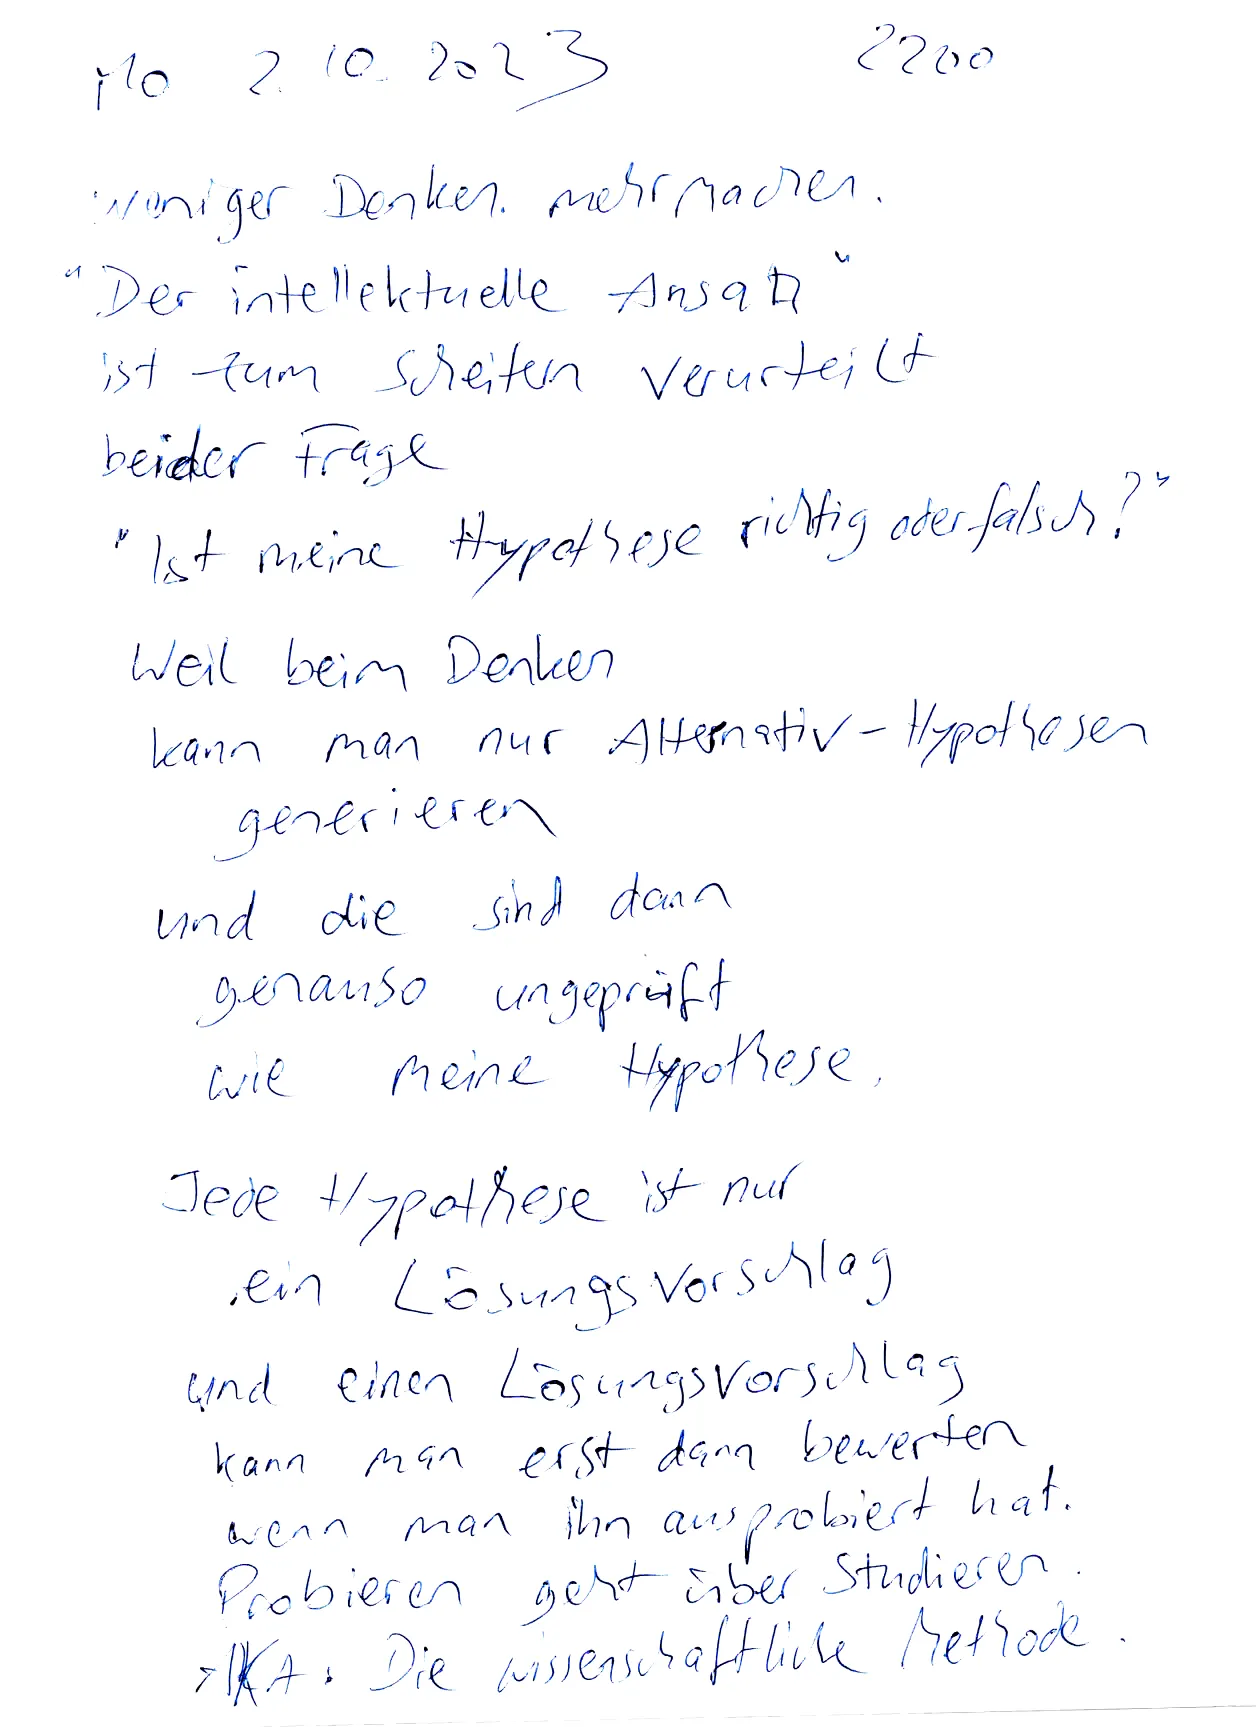 Mo 2.10.2023 2200
weniger Denken. mehr machen.
"Der intellektuelle Ansatz"
ist zum Scheitern verurteilt
bei der Frage
"Ist meine Hypothese richtig oder falsch?"
Weil beim Denken
kann man nur Alternativ-Hypothesen
generieren
und die sind dann
genauso ungeprüft
wie meine Hypothese.
Jede Hypothese ist nur
ein Lösungsvorschlag
und einen Lösungsvorschlag
kann man erst dann bewerten
wenn man ihn ausprobiert hat.
Probieren geht über Studieren.
Die wissenschaftliche Methode.